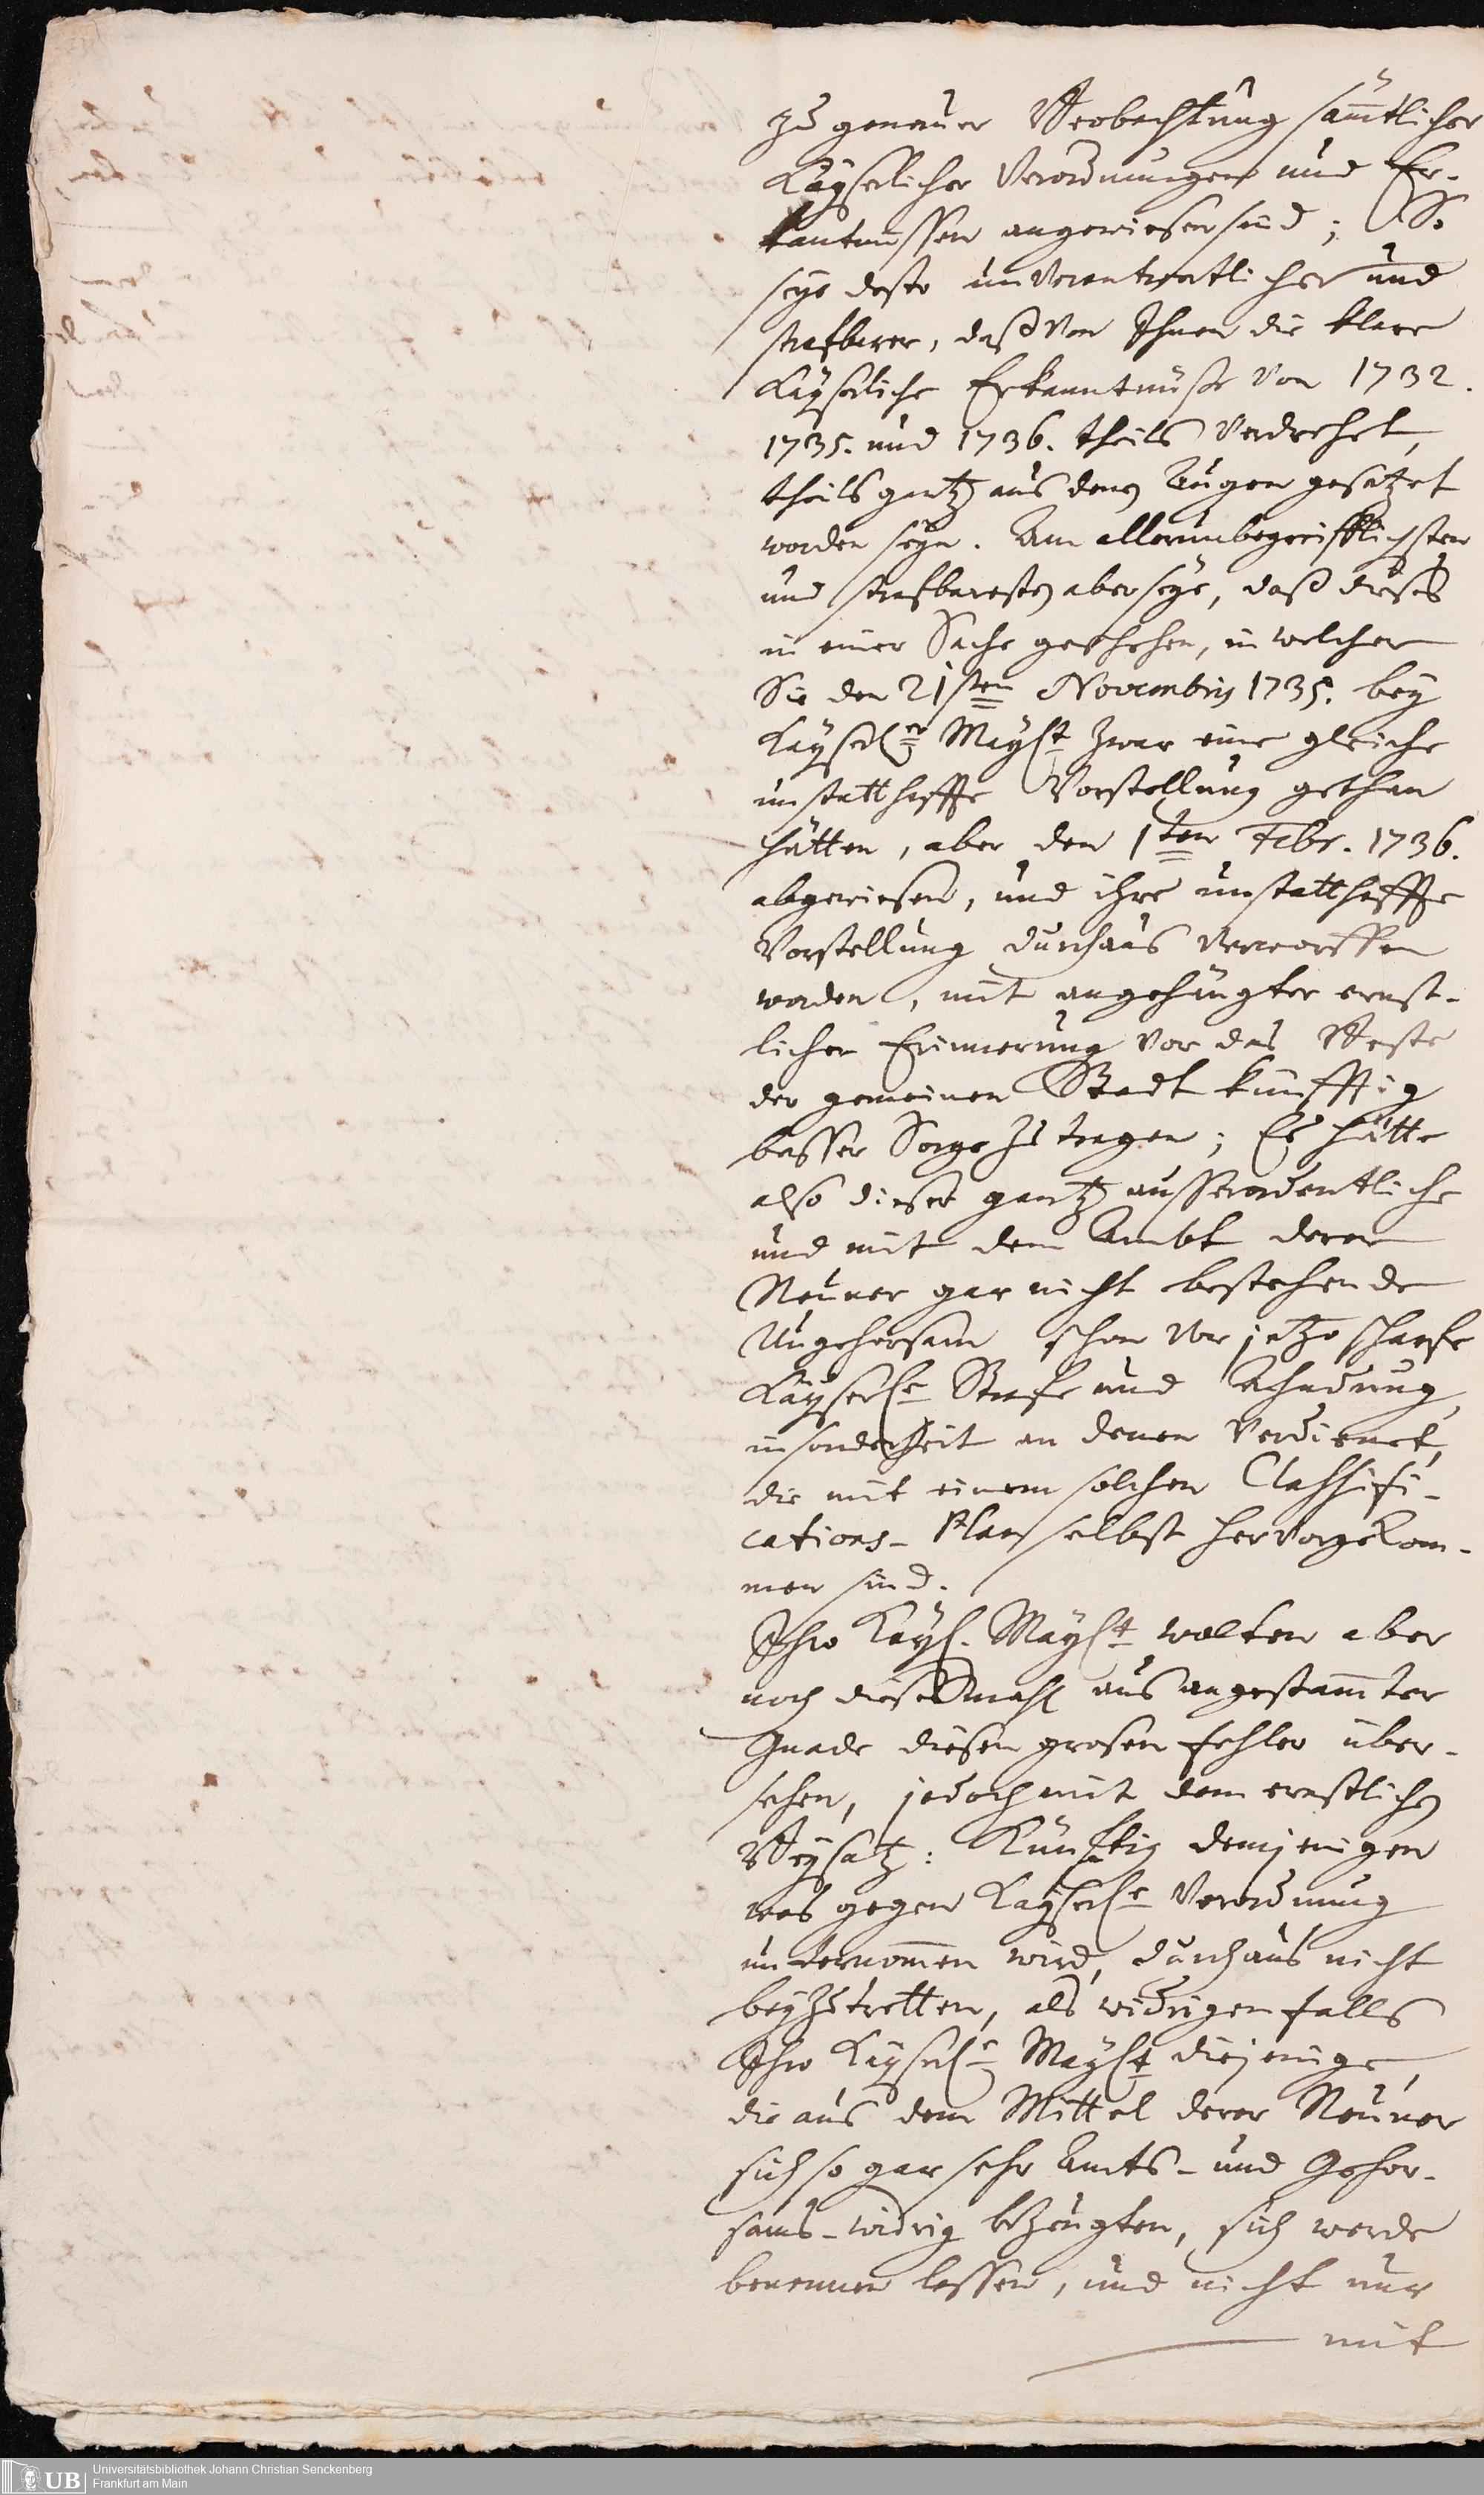 zu genauer Beobachtung sämtlicher
Kayserlicher Verordnungen und Er-
kantnussen angewiesen sind; So
seye desto unverantwortlicher und
strafbarer, daß von Ihnen die klare
Kayserliche Erkanntnüße von 1732.
1735. und 1736. theils verdrehet,
theils gantz aus denen Augen gesetzet
worden seyn. Am allerunbegreifflichsten
und strafbaresten aber seye, daß dieses
in einer Sache geschehen, in welcher
Sie den 21sten Novembris 1735. bey
Kayserl.er Mayst. zwar eine gleiche
unstatthaffte Vorstellung gethan
hätten, aber den 1ten Febr. 1736.
abgewiesen, und ihre unstatthaffte
Vorstellung durchaus verworffen
worden, mit angehängter ernst-
licher Erinnerung vor das Beste
der gemeinen Stadt künfftig
besser Sorge zu tragen; Es hätte
also dieser gantz ausserordentliche
und mit dem Ambt derer
Neuner gar nicht bestehende
Ungehorsam schon vor jetzo scharfe
Kayserl.e Strafe und Ahndung,
insonderheit an denen verdienet,
die mit einem solchen Classifi-
cations-Plan selbst hervorgekom-
men sind.
Ihro Kays. Mayst. wolten aber
noch diesesmahl aus angestammter
Gnade diesen grosen Fehler über-
sehen, jedoch mit dem ernstlichen
Beysatz: Künftig demjenigen
was gegen Kayserl.e Verordnung
unternommen wird, durchaus nicht
beyzutretten, als widrigenfalls
Ihro Kayserl.e Mayst. diejenige,
die aus dem Mittel derer Neuner
sich so gar sehr Amts- und Gehor-
sams-widrig bezeugten, sich werde
benennen lassen, und nicht nur
mit
UB
Universitätsbibliothek Johann Christian Senckenberg
Frankfurt am Main